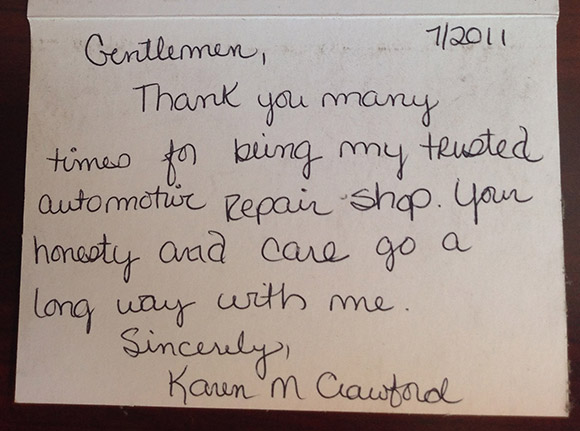 Gentlemen, 7/2011
Thank you many
times for being my trusted
automotive repair shop. Your
honesty and care go a
long way with me.
Sincerely,
Karen M Crawford